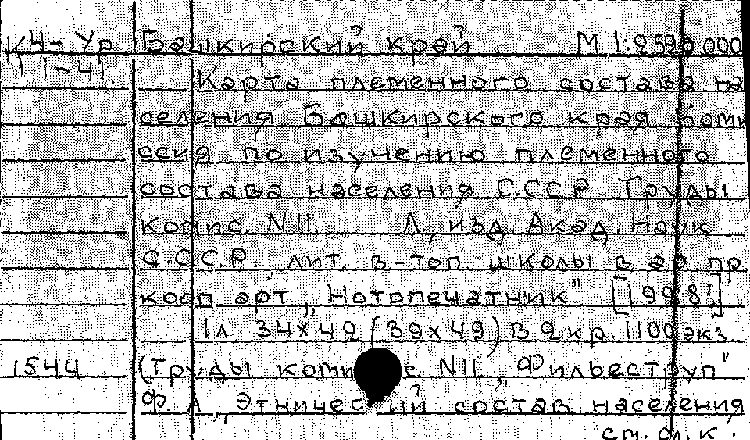 К4-Ур Башкирский край М 1:
1-41 Карта племенного состава на
селения Башкирского края Коми
ссия по изучению племенного
состава населения С.С.С.Р. Труды
комис. N11. Л., изд. Акад. Наук
С.С.С.Р. лит. в-топ. школы пр
кооп. арт. „Нотопечатник"
1л 34х42 (39х49) В 2 кр. 1100 экз.
1544 (Труды N11, Фильвеструп"
Ф. А. состав населения
см. ф. к.